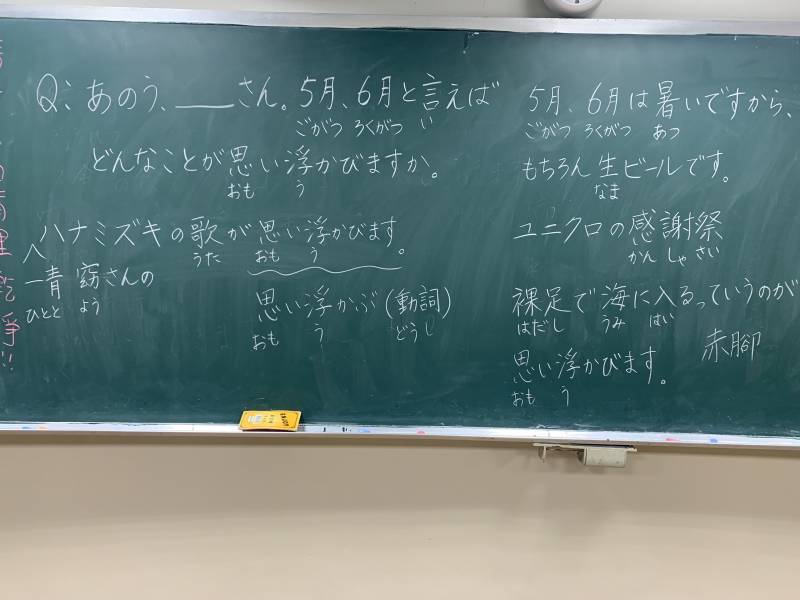 Q：あのう、___さん。5月、6月と言えば
ごがつ ろくがつ い
どんなことが思い浮かびますか。
おも う
ハナミズキの歌が思い浮かびます。
うた おも う
一青 窈さんの
ひとと よう
思い浮かぶ(動詞)
おも う どうし
5月、6月は暑いですから、
ごがつ ろくがつ あつ
もちろん生ビールです。
なま
ユニクロの感謝祭
かん しゃ さい
裸足で海に入るっていうのが
はだし うみ はい
赤腳
思い浮かびます。
おも う